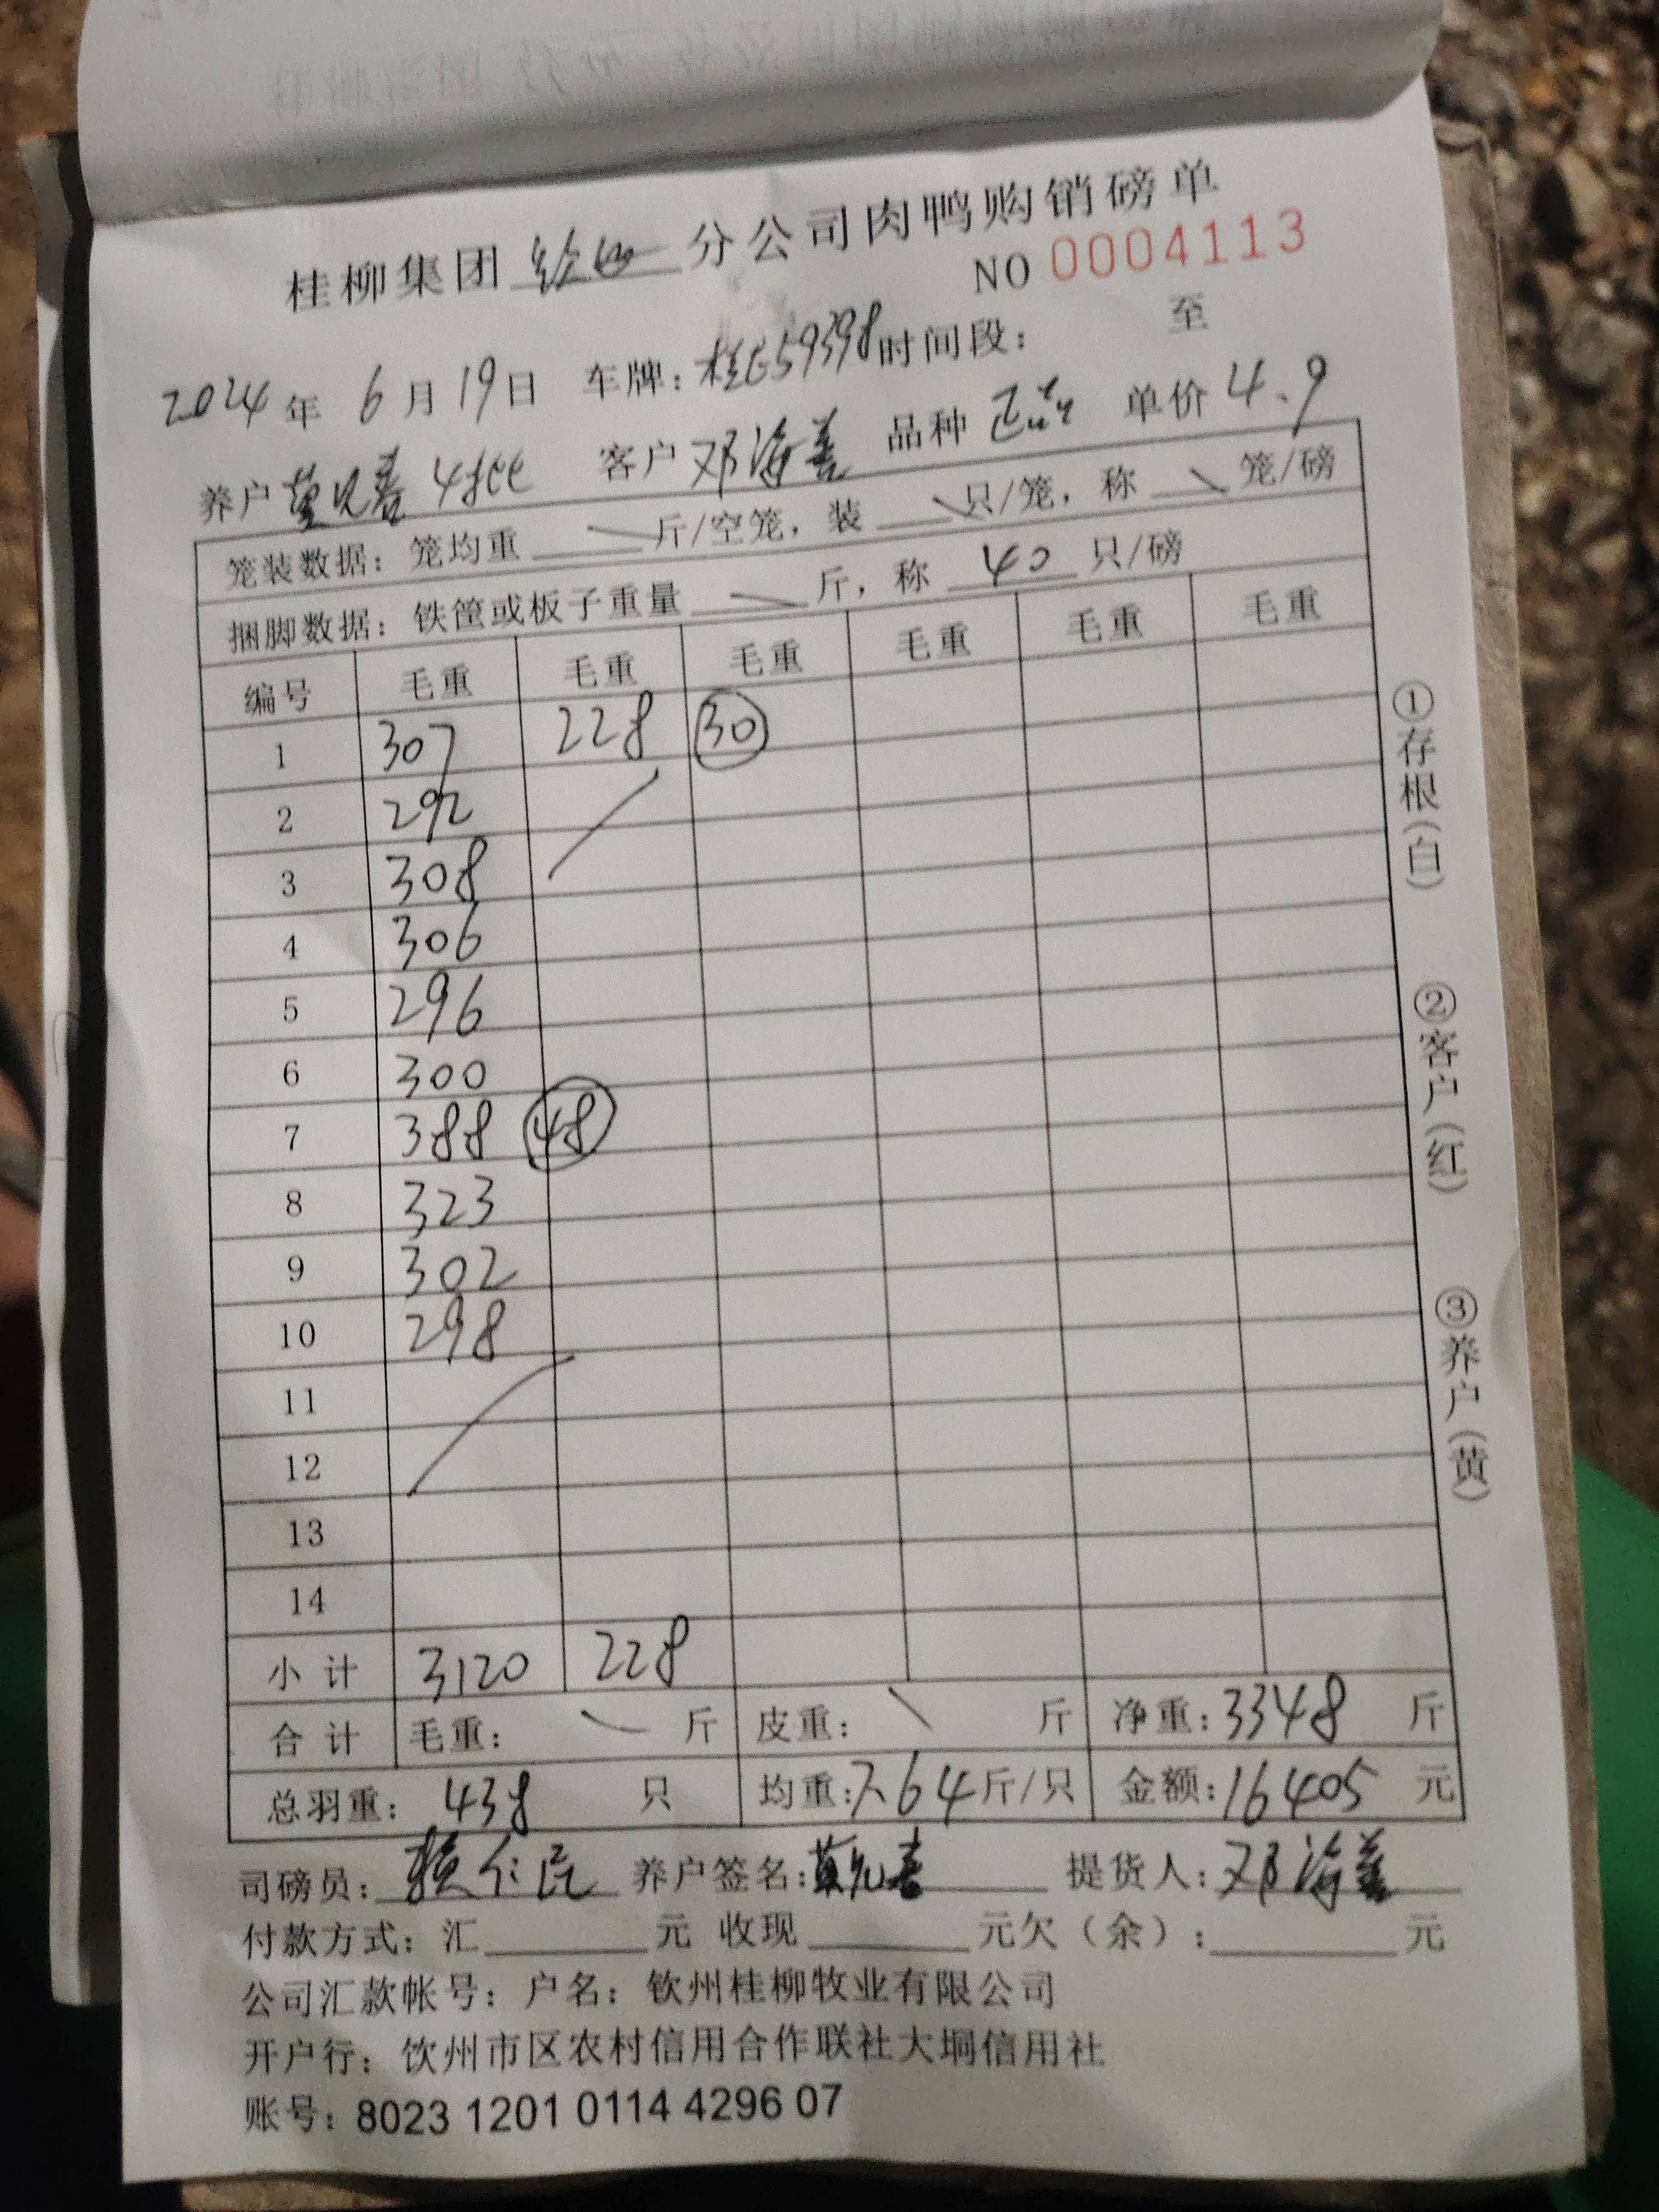 桂柳集团 分公司肉鸭购销磅单
NO 0004113
2024年 6月19日 车牌：桂E59398 时间段： 至
养户 4批 客户 邓海善 品种 单价 4.9
笼装数据：笼均重 斤/空笼，装 只/笼，称 笼/磅
捆脚数据：铁筐或板子重量 斤，称 40 只/磅
编号 毛重 毛重 毛重 毛重 毛重 毛重
1 307 228 30
2 292
3 308
4 306
5 296
6 300
7 388 48
8 323
9 302
10 298
11
12
13
14
小计 3120 228
合计 毛重： 斤 皮重： 斤 净重：3348 斤
总羽重：438 只 均重：7.64斤/只 金额：16405 元
司磅员： 养户签名： 提货人：邓海善
付款方式：汇 元 收现 元欠（余）： 元
公司汇款帐号：户名：钦州桂柳牧业有限公司
开户行：钦州市区农村信用合作联社大垌信用社
账号：8023 1201 0114 4296 07
①存根（白）
②客户（红）
③养户（黄）